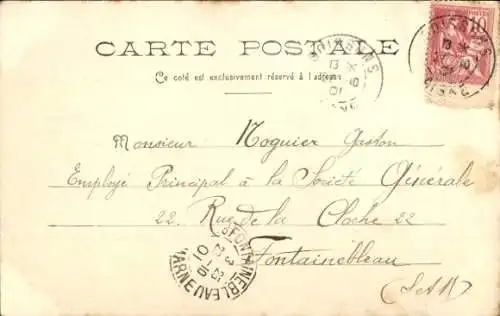 CARTE POSTALE
Ce coté est exclusivement réservé à l'adresse
SOISSONS
AISNE
10
Monsieur Noguier Gaston
Employé Principal à la Société Générale
22. Rue de la Cloche 22
Fontainebleau
(S&M)
FONTAINEBLEAU
MARNE